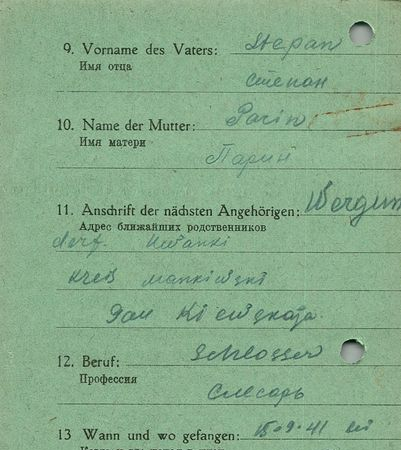 9. Vorname des Vaters: Stepan
Имя отца
степан
10. Name der Mutter: Parin
Имя матери
Парин
11. Anschrift der nächsten Angehörigen:
Адрес ближайших родственников
dorf.
Kreis mankiwski
Kiewskaja
12. Beruf: Schlosser
Профессия
Слесарь
13 Wann und wo gefangen: 15.9.41